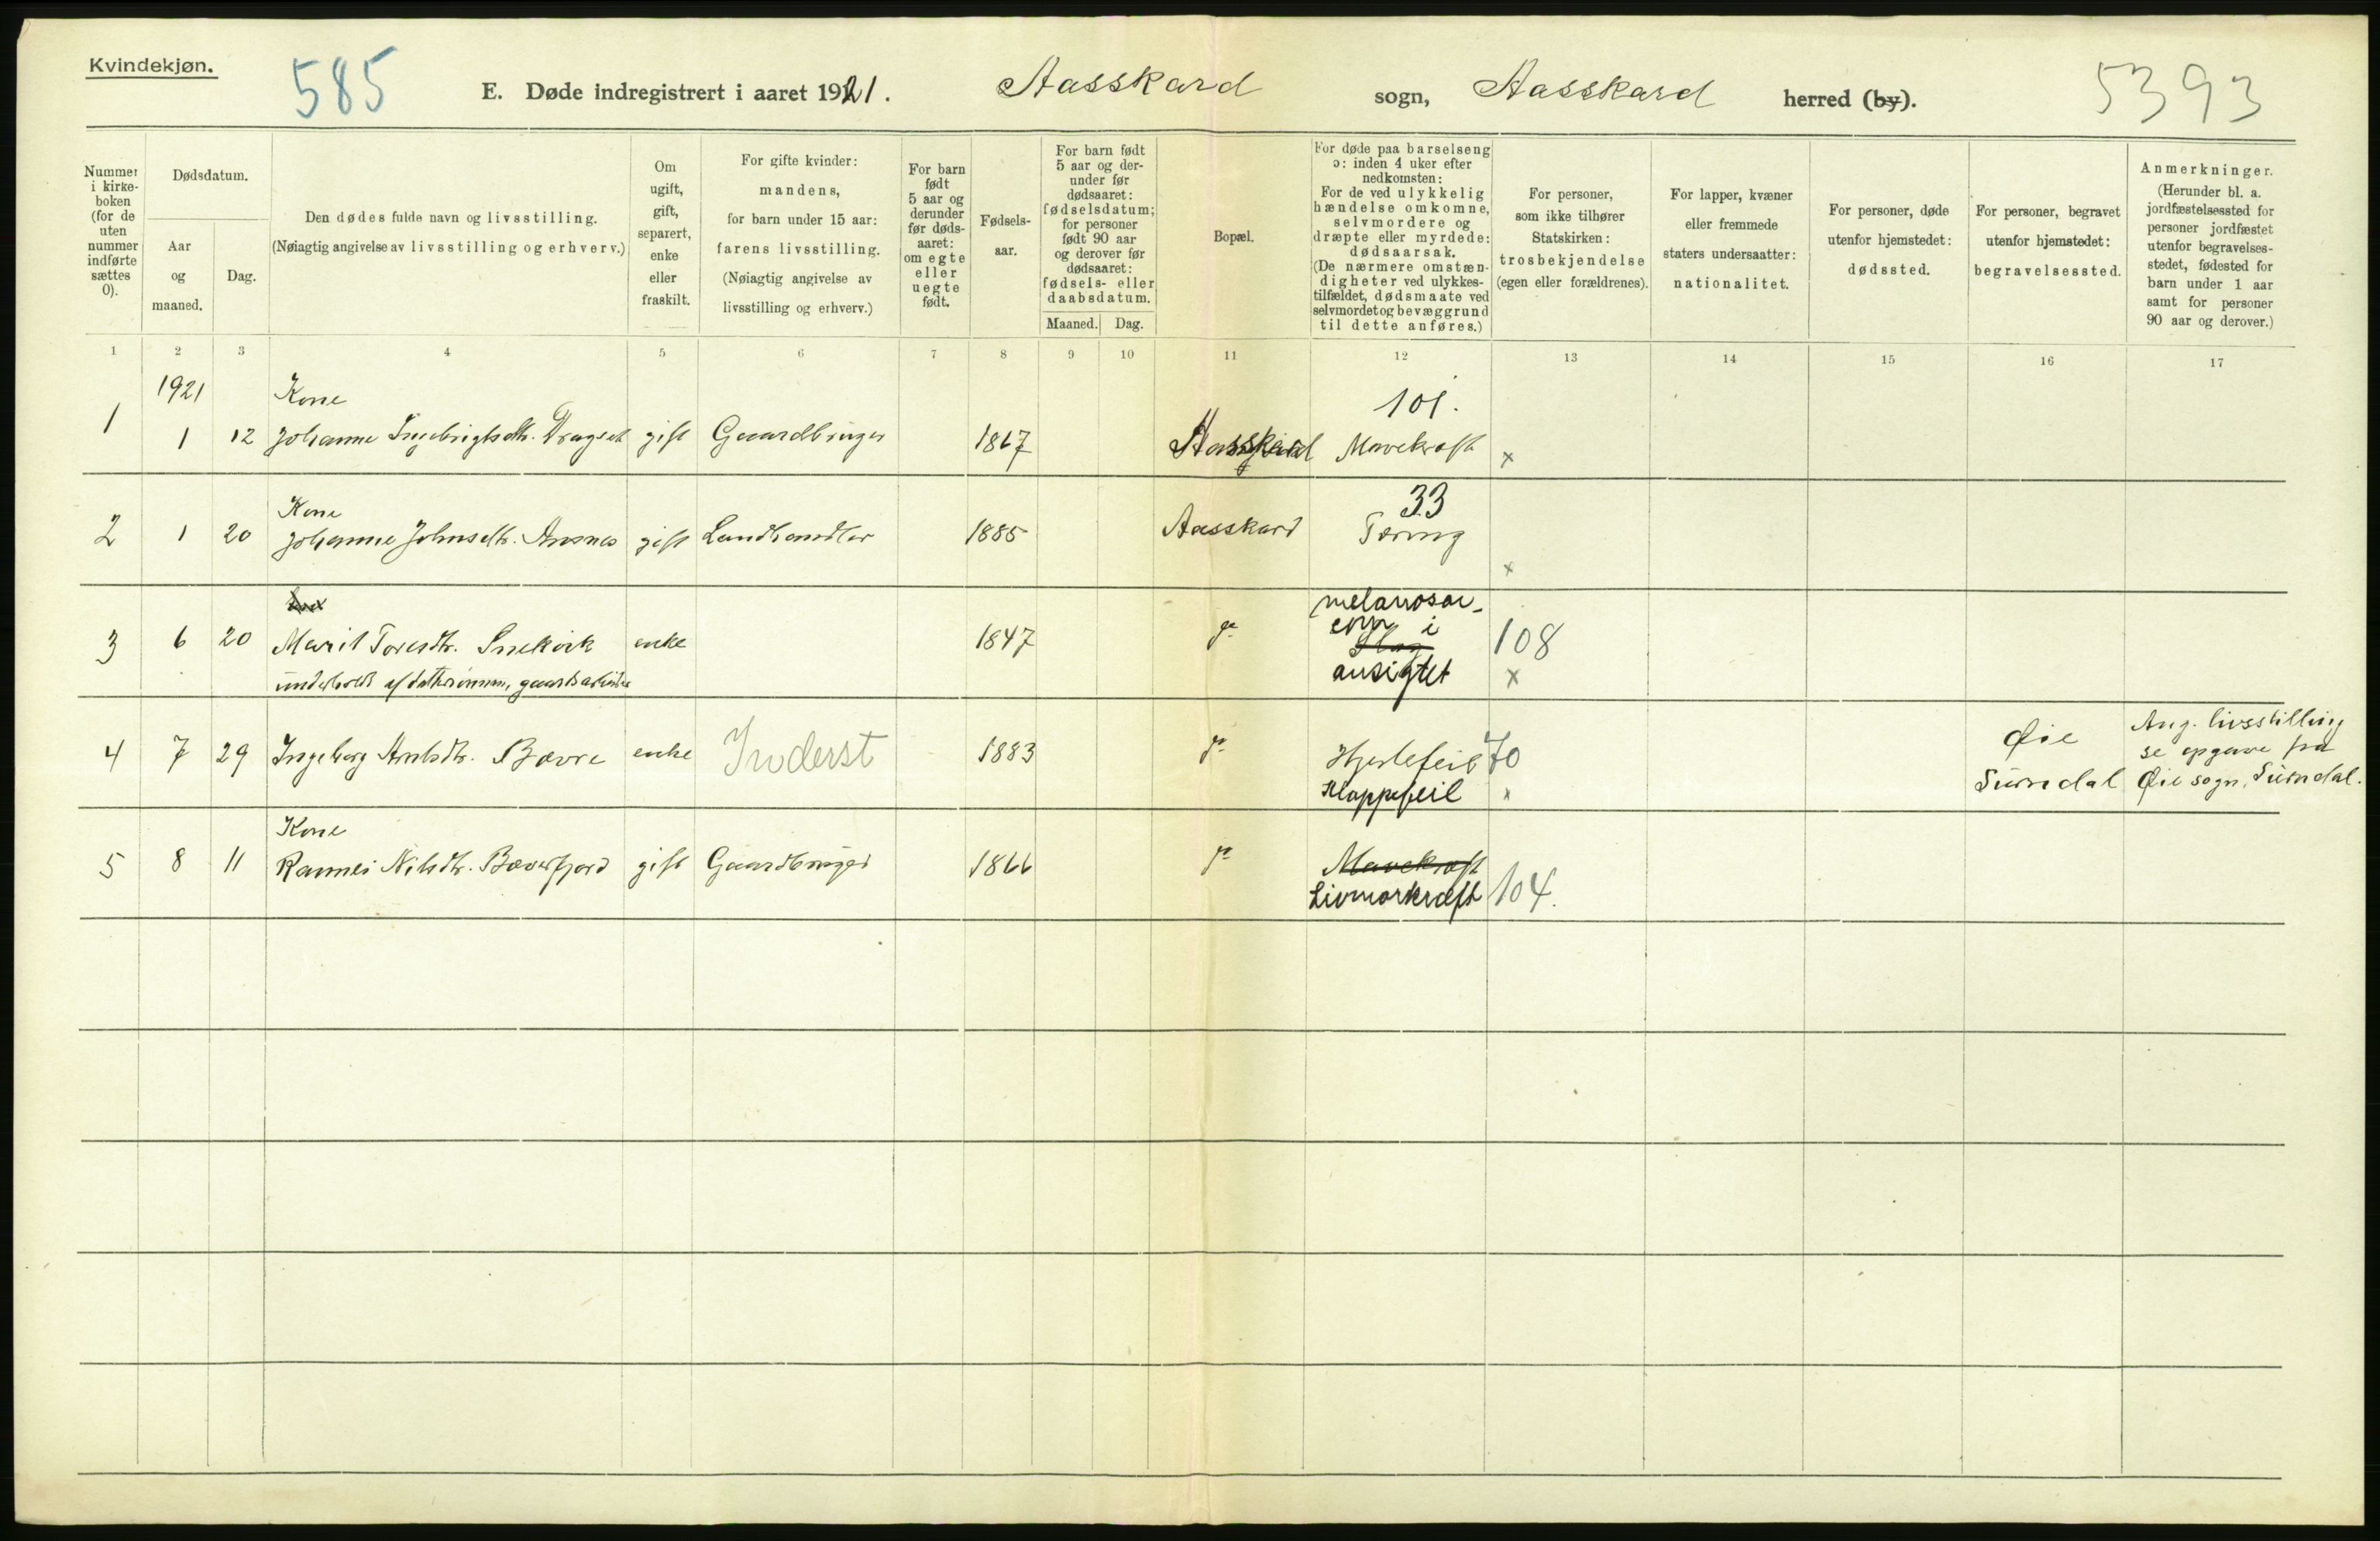 Kvindekjøn.
585
E. Døde indregistrert i aaret 1921.
Aasskard sogn, Aasskard herred (by).
5393
Nummer i kirke-boken (for de uten nummer indførte sættes 0).
Dødsdatum.
Aar og maaned.
Dag.
Den dødes fulde navn og livsstilling.
(Nøiagtig angivelse av livsstilling og erhverv.)
Om ugift, gift, separert, enke eller fraskilt.
For gifte kvinder: mandens, for barn under 15 aar: farens livsstilling.
(Nøiagtig angivelse av livsstilling og erhverv.)
For barn født 5 aar og derunder før døds-aaret: om egte eller uegte født.
Fødsels-aar.
For barn født 5 aar og der-under før dødsaaret: fødselsdatum; for personer født 90 aar og derover før dødsaaret: fødsels- eller daabsdatum.
Maaned. Dag.
Bopæl.
For døde paa barselseng ɔ: inden 4 uker efter nedkomsten:
For de ved ulykkelig hændelse omkomne, selvmordere og dræpte eller myrdede: dødsaarsak.
(De nærmere omstæn-digheter ved ulykkes-tilfældet, dødsmaate ved selvmordet og bevæggrund til dette anføres.)
For personer, som ikke tilhører Statskirken: trosbekjendelse (egen eller forældrenes).
For lapper, kvæner eller fremmede staters undersaatter: nationalitet.
For personer, døde utenfor hjemstedet: dødssted.
For personer, begravet utenfor hjemstedet: begravelsessted.
Anmerkninger.
(Herunder bl. a. jordfæstelsessted for personer jordfæstet utenfor begravelses-stedet, fødested for barn under 1 aar samt for personer 90 aar og derover.)
1 2 3 4 5 6 7 8 9 10 11 12 13 14 15 16 17
1921 Kone 101.
1 1 12 Johanne Ingebrigtsdtr. Dragset gift Gaardbruger 1867 Aasskard Mavekræft x
Kone 33
2 1 20 Johanne Johnsdtr. Aasnes gift Landhandler 1885 Aasskard Tæring x
melanosar-
com i
3 6 20 Marit Toresdtr. Snekvik enke 1847 do 108
underholdt af dattersønnen, gaardsarbeider ansigtet x
4 7 29 Ingeborg Arntsdtr. Bævre enke Inderst 1883 do Hjertefeil 70 Øie
Klappefeil x Surndal
Ang. livsstilling
se opgave fra
Øie sogn, Surndal.
Kone
5 8 11 Rannei Nilsdtr. Bæverfjord gift Gaardbruger 1866 do Mavekræft
Livmorkræft 104.